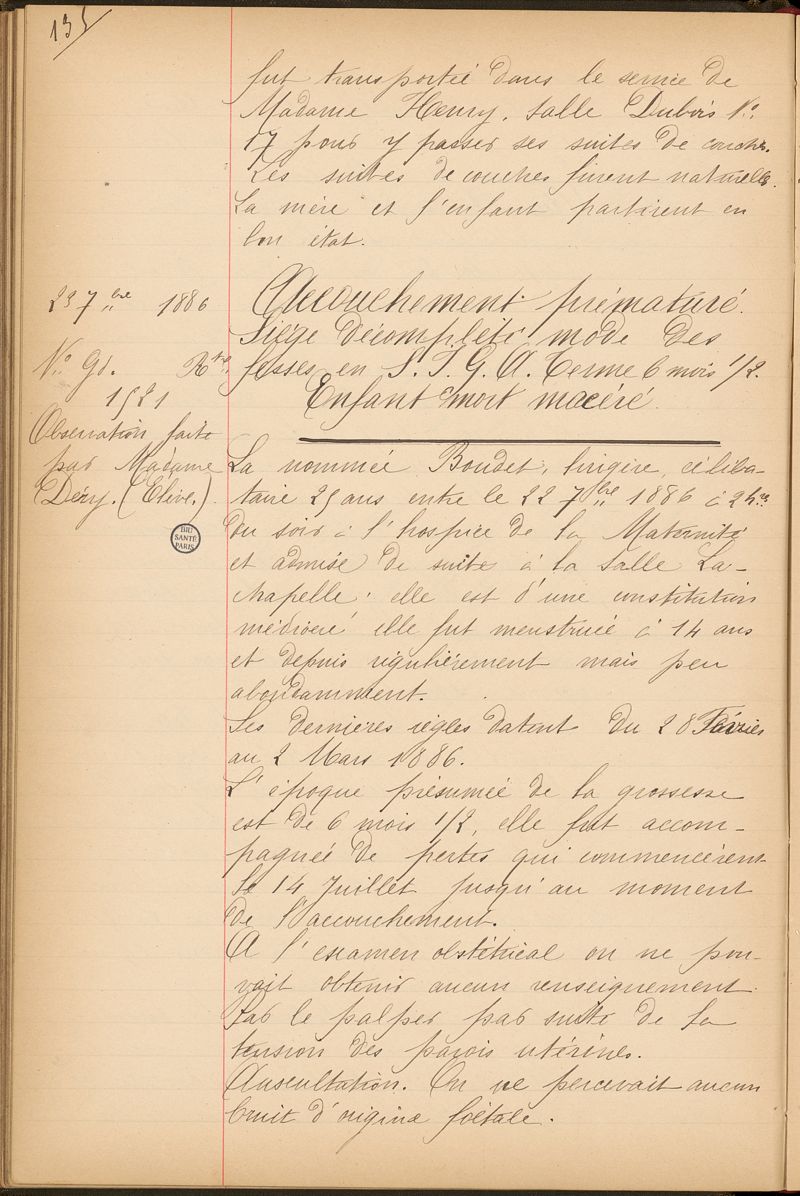 135
fut transportée dans le service de
Madame Henry, salle Dubois No.
17 pour y passer ses suites de couches.
Les suites de couches furent naturelles.
La mère et l'enfant partirent en
bon état.
23 7bre 1886
No. 91.
1521
Observation faite
par Madame
Déry. (Elève.)
BIU
SANTÉ
PARIS
Accouchement prématuré.
Siège décomplété mode des
fesses en S.I.G.A. Terme 6 mois 1/2.
Enfant mort macéré.
La nommée Boudet, lingère, céliba-
taire 25 ans entre le 22 7bre 1886 à 2h.res
du soir à l'hospice de la Maternité
et admise de suite à la salle La-
chapelle; elle est d'une constitution
médiocre, elle fut menstruée à 14 ans
et depuis régulièrement mais peu
abondamment.
Ses dernières règles datent du 28 Février
au 2 Mars 1886.
L'époque présumée de la grossesse
est de 6 mois 1/2, elle fut accom-
pagnée de pertes qui commencèrent
le 14 Juillet jusqu'au moment
de l'accouchement.
A l'examen obstétrical on ne pou-
vait obtenir aucun renseignement
Par le palper par suite de la
tension des parois utérines.
Auscultation. On ne percevait aucun
bruit d'origine foetale.